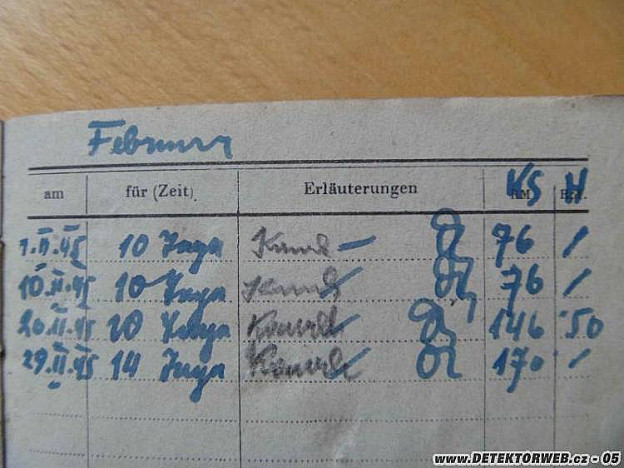 Februar
am für (Zeit) Erläuterungen KS H
1.II.45 10 Tage 76 /
10.II.45 10 Tage 76 /
20.II.45 20 Tage 146 50
29.II.45 14 Tage 170 /
www.DETEKTORWEB.cz - 05